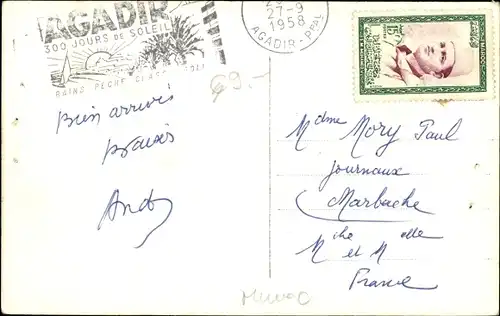 AGADIR
300 JOURS DE SOLEIL
BAINS PÊCHE CHASSE GOLF
27-9
1958
AGADIR-PPAL
15F
MAROC
69.-
Bien arrivés
Baisers
André
Mdme Mory Paul
Journaux
Marbache
Mthe et Mlle
France
Maroc